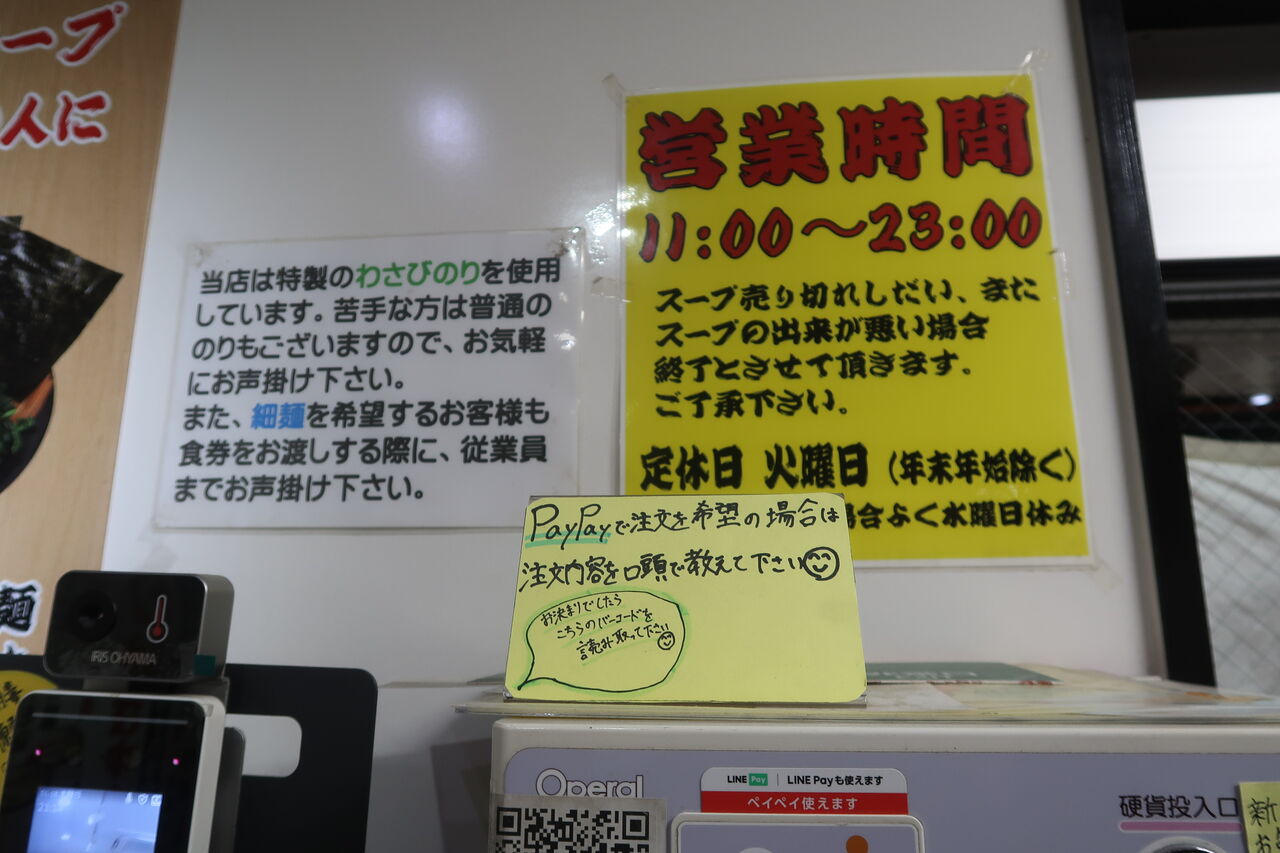 ープ
人に
営業時間
11:00～23:00
スープ売り切れしだい、また
スープの出来が悪い場合
終了とさせて頂きます。
ご了承下さい。
定休日 火曜日（年末年始除く）
場合よく水曜日休み
当店は特製のわさびのりを使用
しています。苦手な方は普通の
のりもございますので、お気軽
にお声掛け下さい。
また、細麺を希望するお客様も
食券をお渡しする際に、従業員
までお声掛け下さい。
PayPayで注文を希望の場合は
注文内容を口頭で教えて下さい
お決まりでしたら
こちらのバーコードを
読み取って下さい
麺
IRIS OHYAMA
Operal
LINE Pay LINE Payも使えます
ペイペイ使えます
硬貨投入口
新